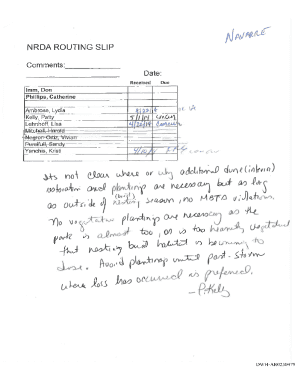 NAVARRE
NRDA ROUTING SLIP
Comments:
Date:
Received Due
Imm, Don
Phillips, Catherine
Ambrosio, Lydia
Kelly, Patty 5/1/14 concur
Lehnhoff, Lisa 4/30/14 Concur
Mitchell, Harold
Negron-Ortiz, Vivian
Pursifull, Sandy
Yanchis, Kristi
Its not clear where or why additional dune (interim)
restoration and plantings are necessary but as long
as outside of (bird's) nesting season, no MBTA violation.
No vegetative plantings are necessary as the
park is almost too, or is too heavily vegetated
that nesting bird habitat is becoming to
dense. Avoid planting until post-storm
where loss has occurred is preferred.
- P. Kelly